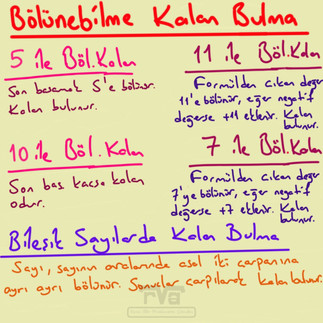 Bölünebilme Kalan Bulma
5 ile Böl.Kalan
Son basamak 5'e bölünür.
Kalan bulunur.
11 ile Böl.Kalan
Formülden çıkan değer
11'e bölünür, eğer negatif
değerse +11 eklenir. Kalan
bulunur.
10 ile Böl.Kalan
Son bas. kaçsa kalan
odur.
7 ile Böl.Kalan
Formülden çıkan değer
7'ye bölünür, eğer negatif
değerse +7 eklenir. Kalan
bulunur.
Bileşik Sayılarda Kalan Bulma
Sayı, sayının aralarında asal iki çarpanına
ayrı ayrı bölünür. Sonuçlar çarpılarak kalan bulunur.
rva